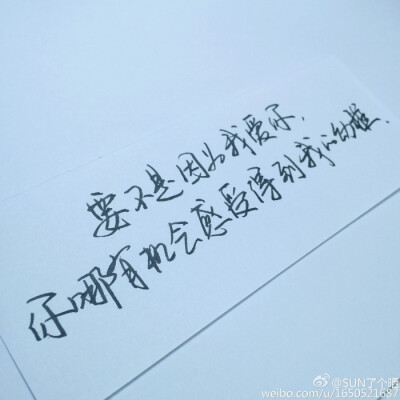 要不是因为我爱你,
你哪有机会感受得到我的幼稚.
@SUN了个晒
weibo.com/u/1650521687